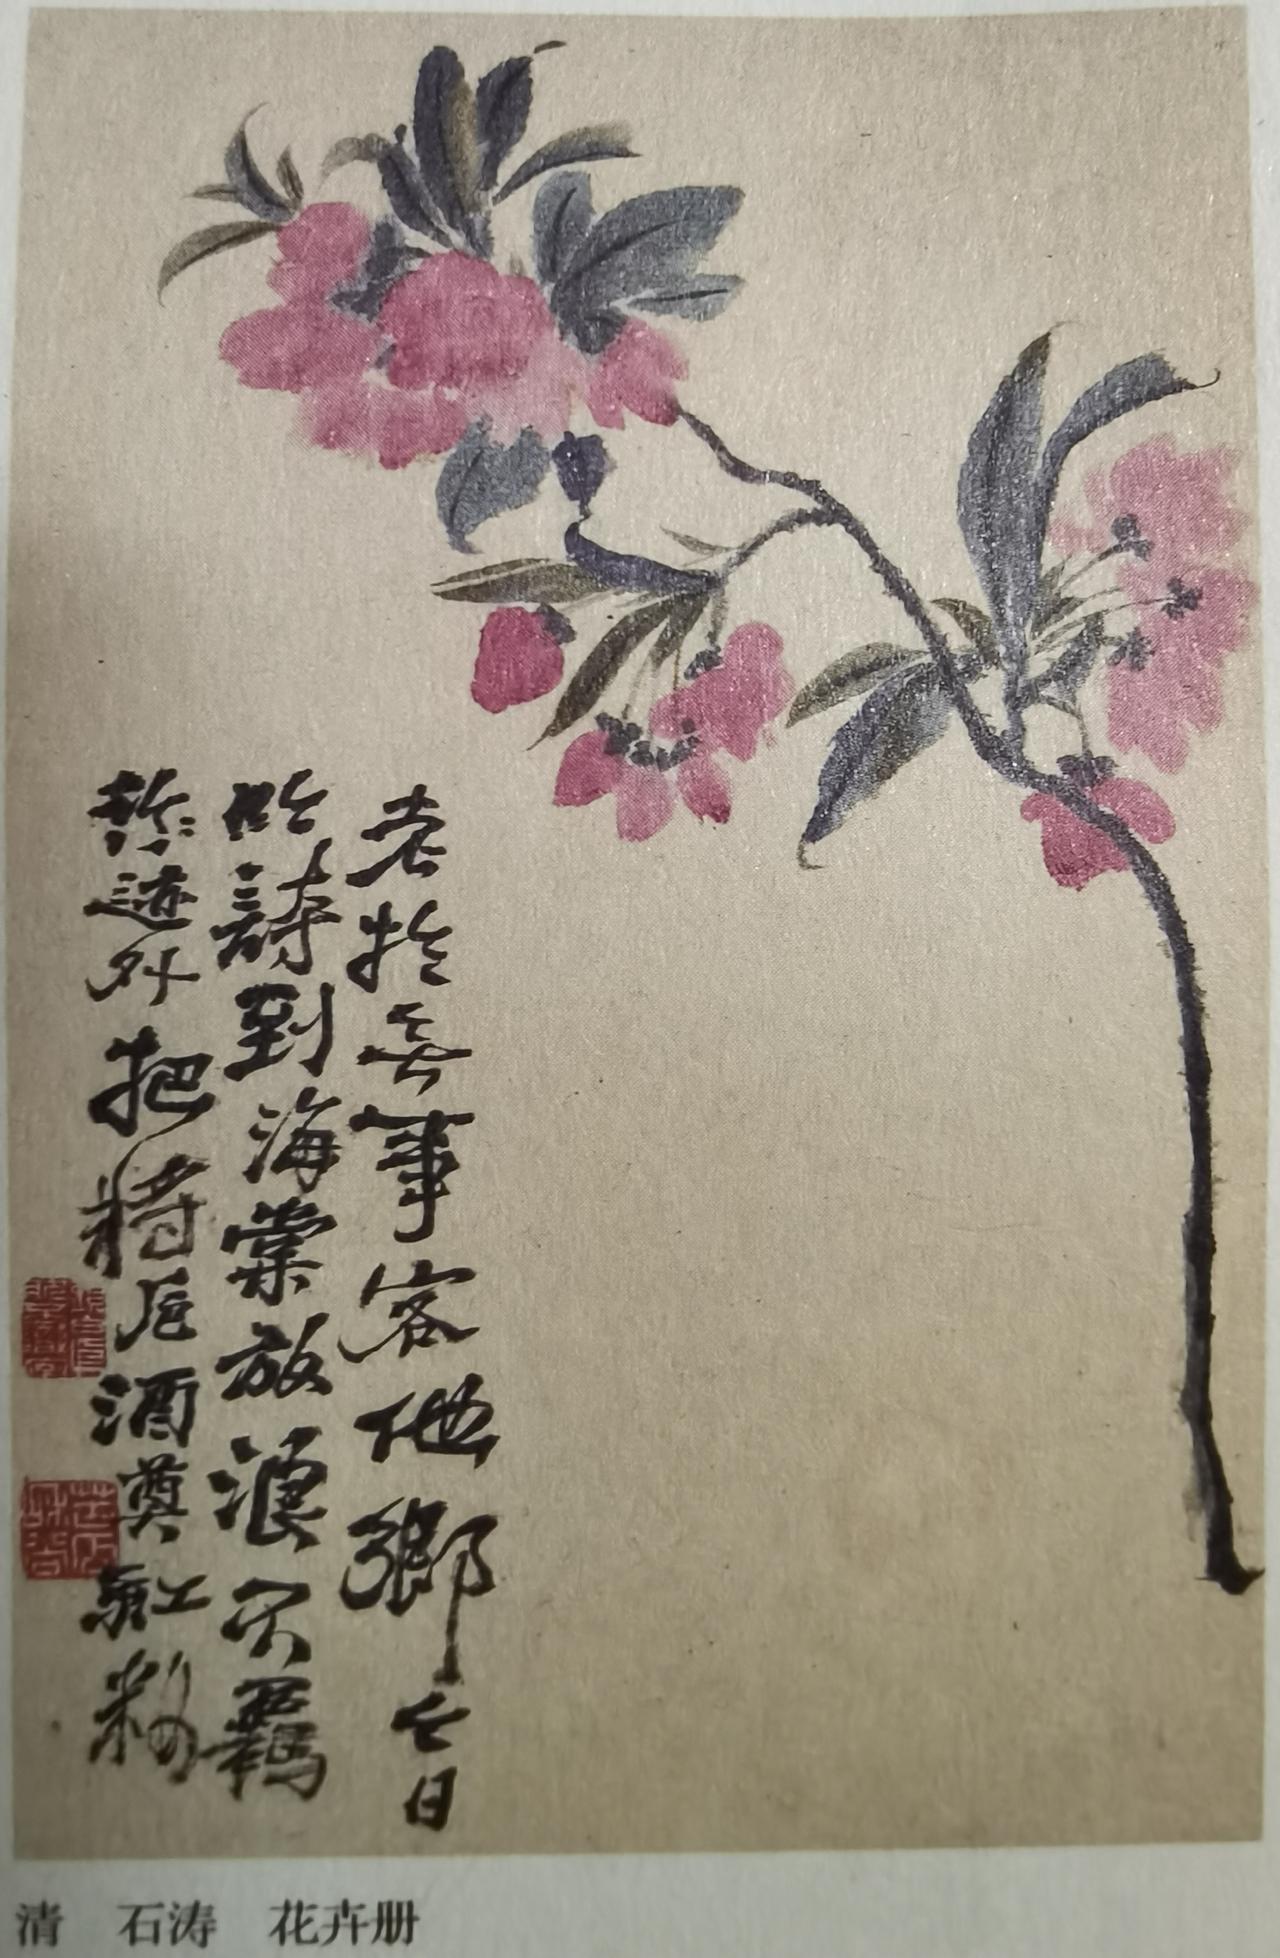 老於無事客他鄉今日
吟詩到海棠放浪不羈
迹外把將卮酒奠紅
清 石涛 花卉册